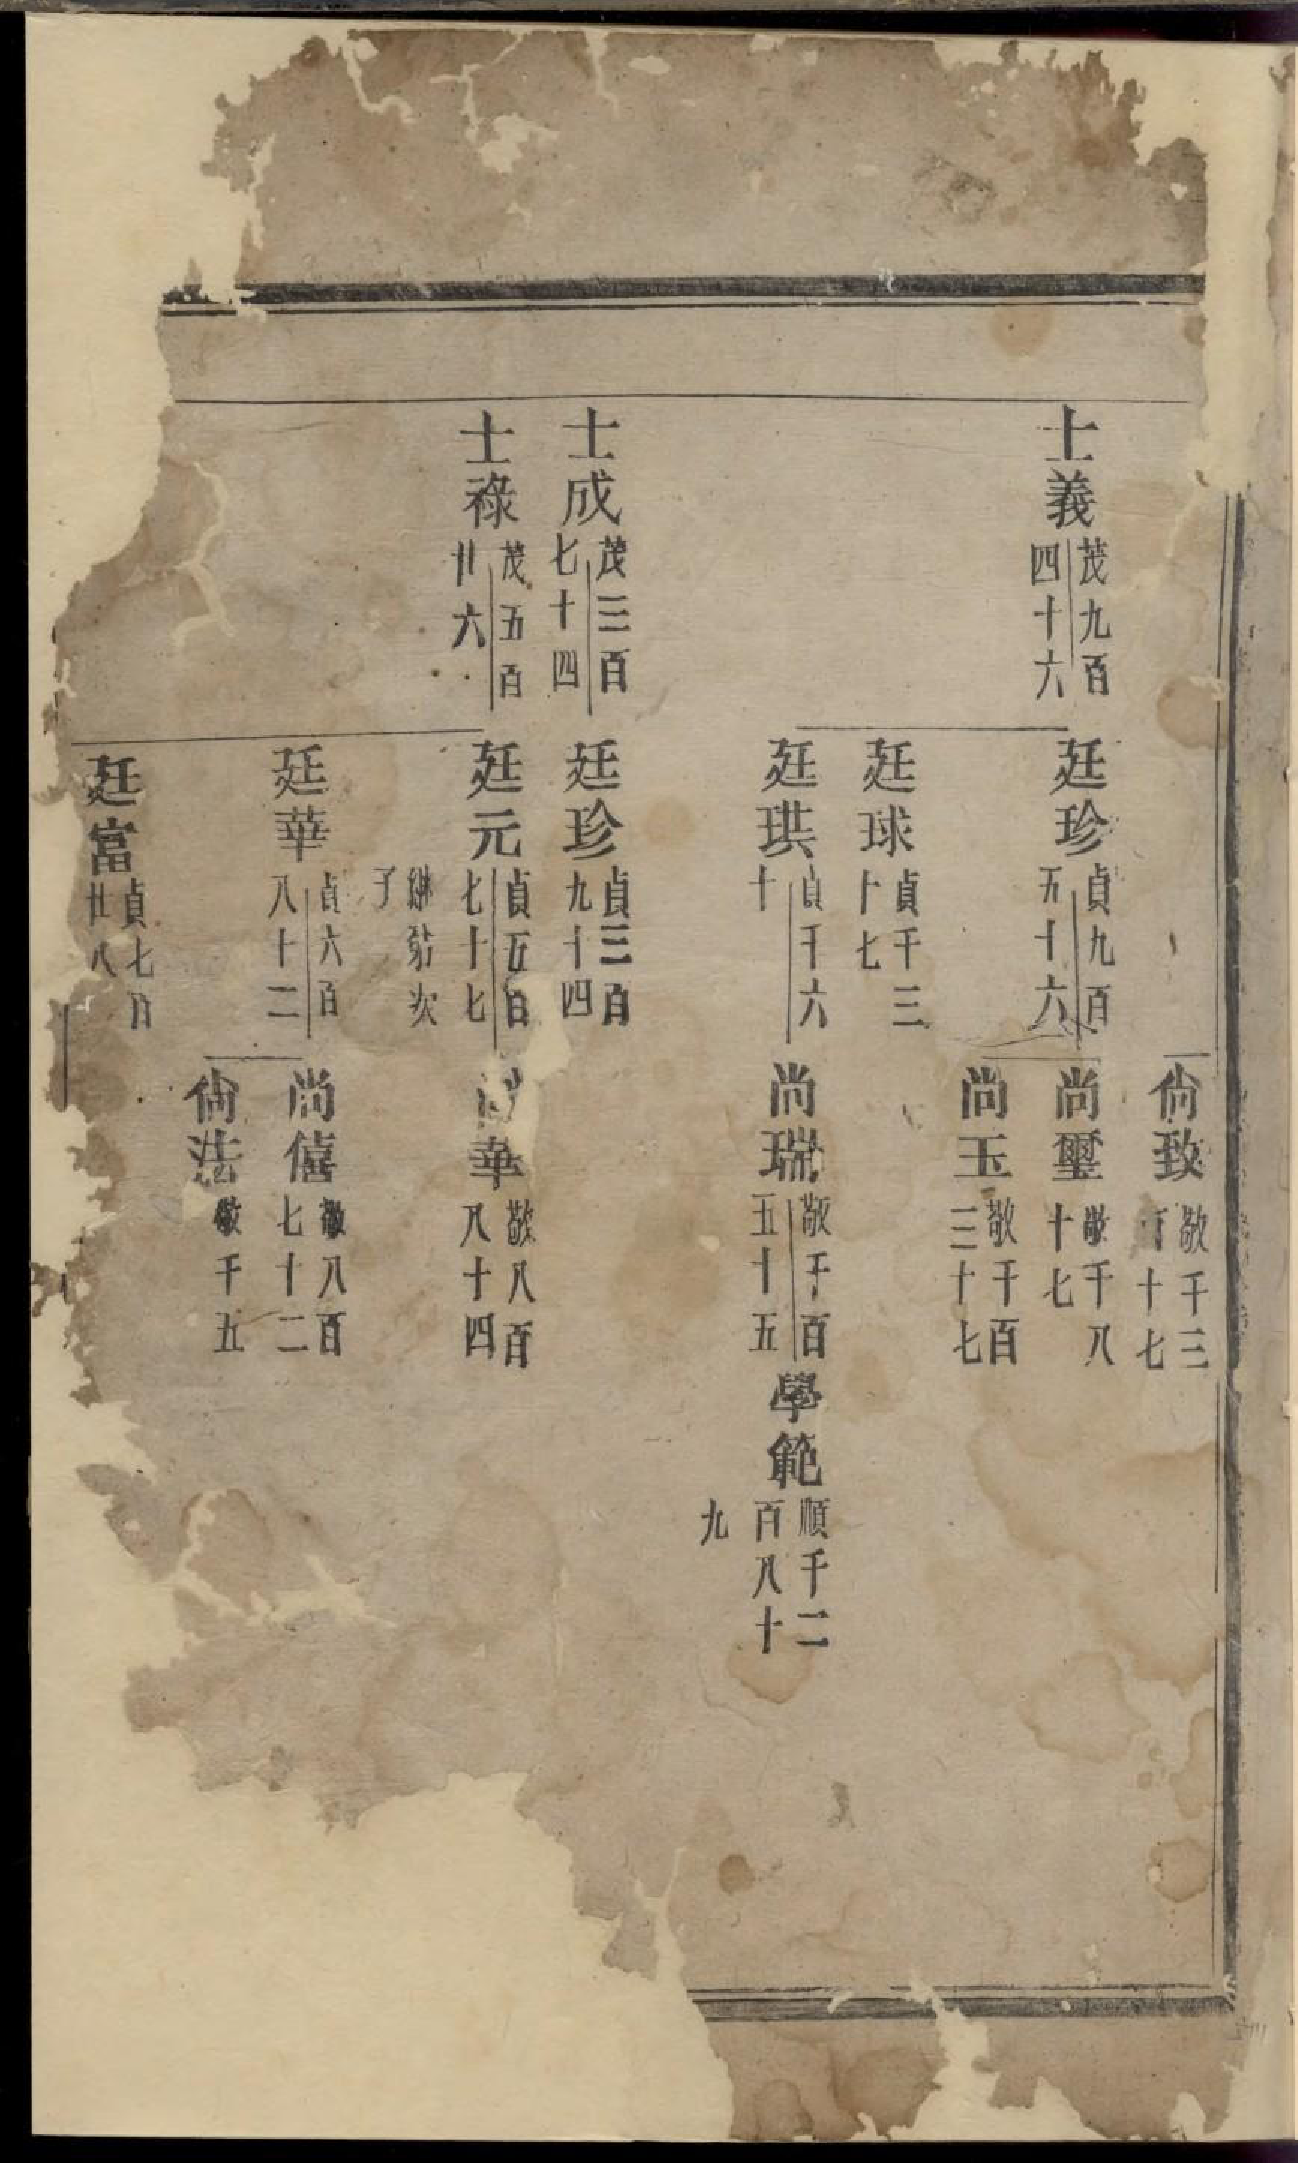 尙致 敬千三百十七
士義 茂九百四十六
廷珍 貞九百五十六
尙璽 敬千八十七
尙玉 敬千百三十七
廷球 貞千三十七
廷珙 貞千六十
尙瑞 敬千百五十五
學範 順千二百八十九
士成 茂三百七十四
廷珍 貞三百九十四
士祿 茂五百廿六
廷元 貞五百七十七
華 敬八百八十四
繼 次子
廷華 貞六百八十二
尙僖 敬八百七十二
尙法 敬千五
廷富 貞七百廿八